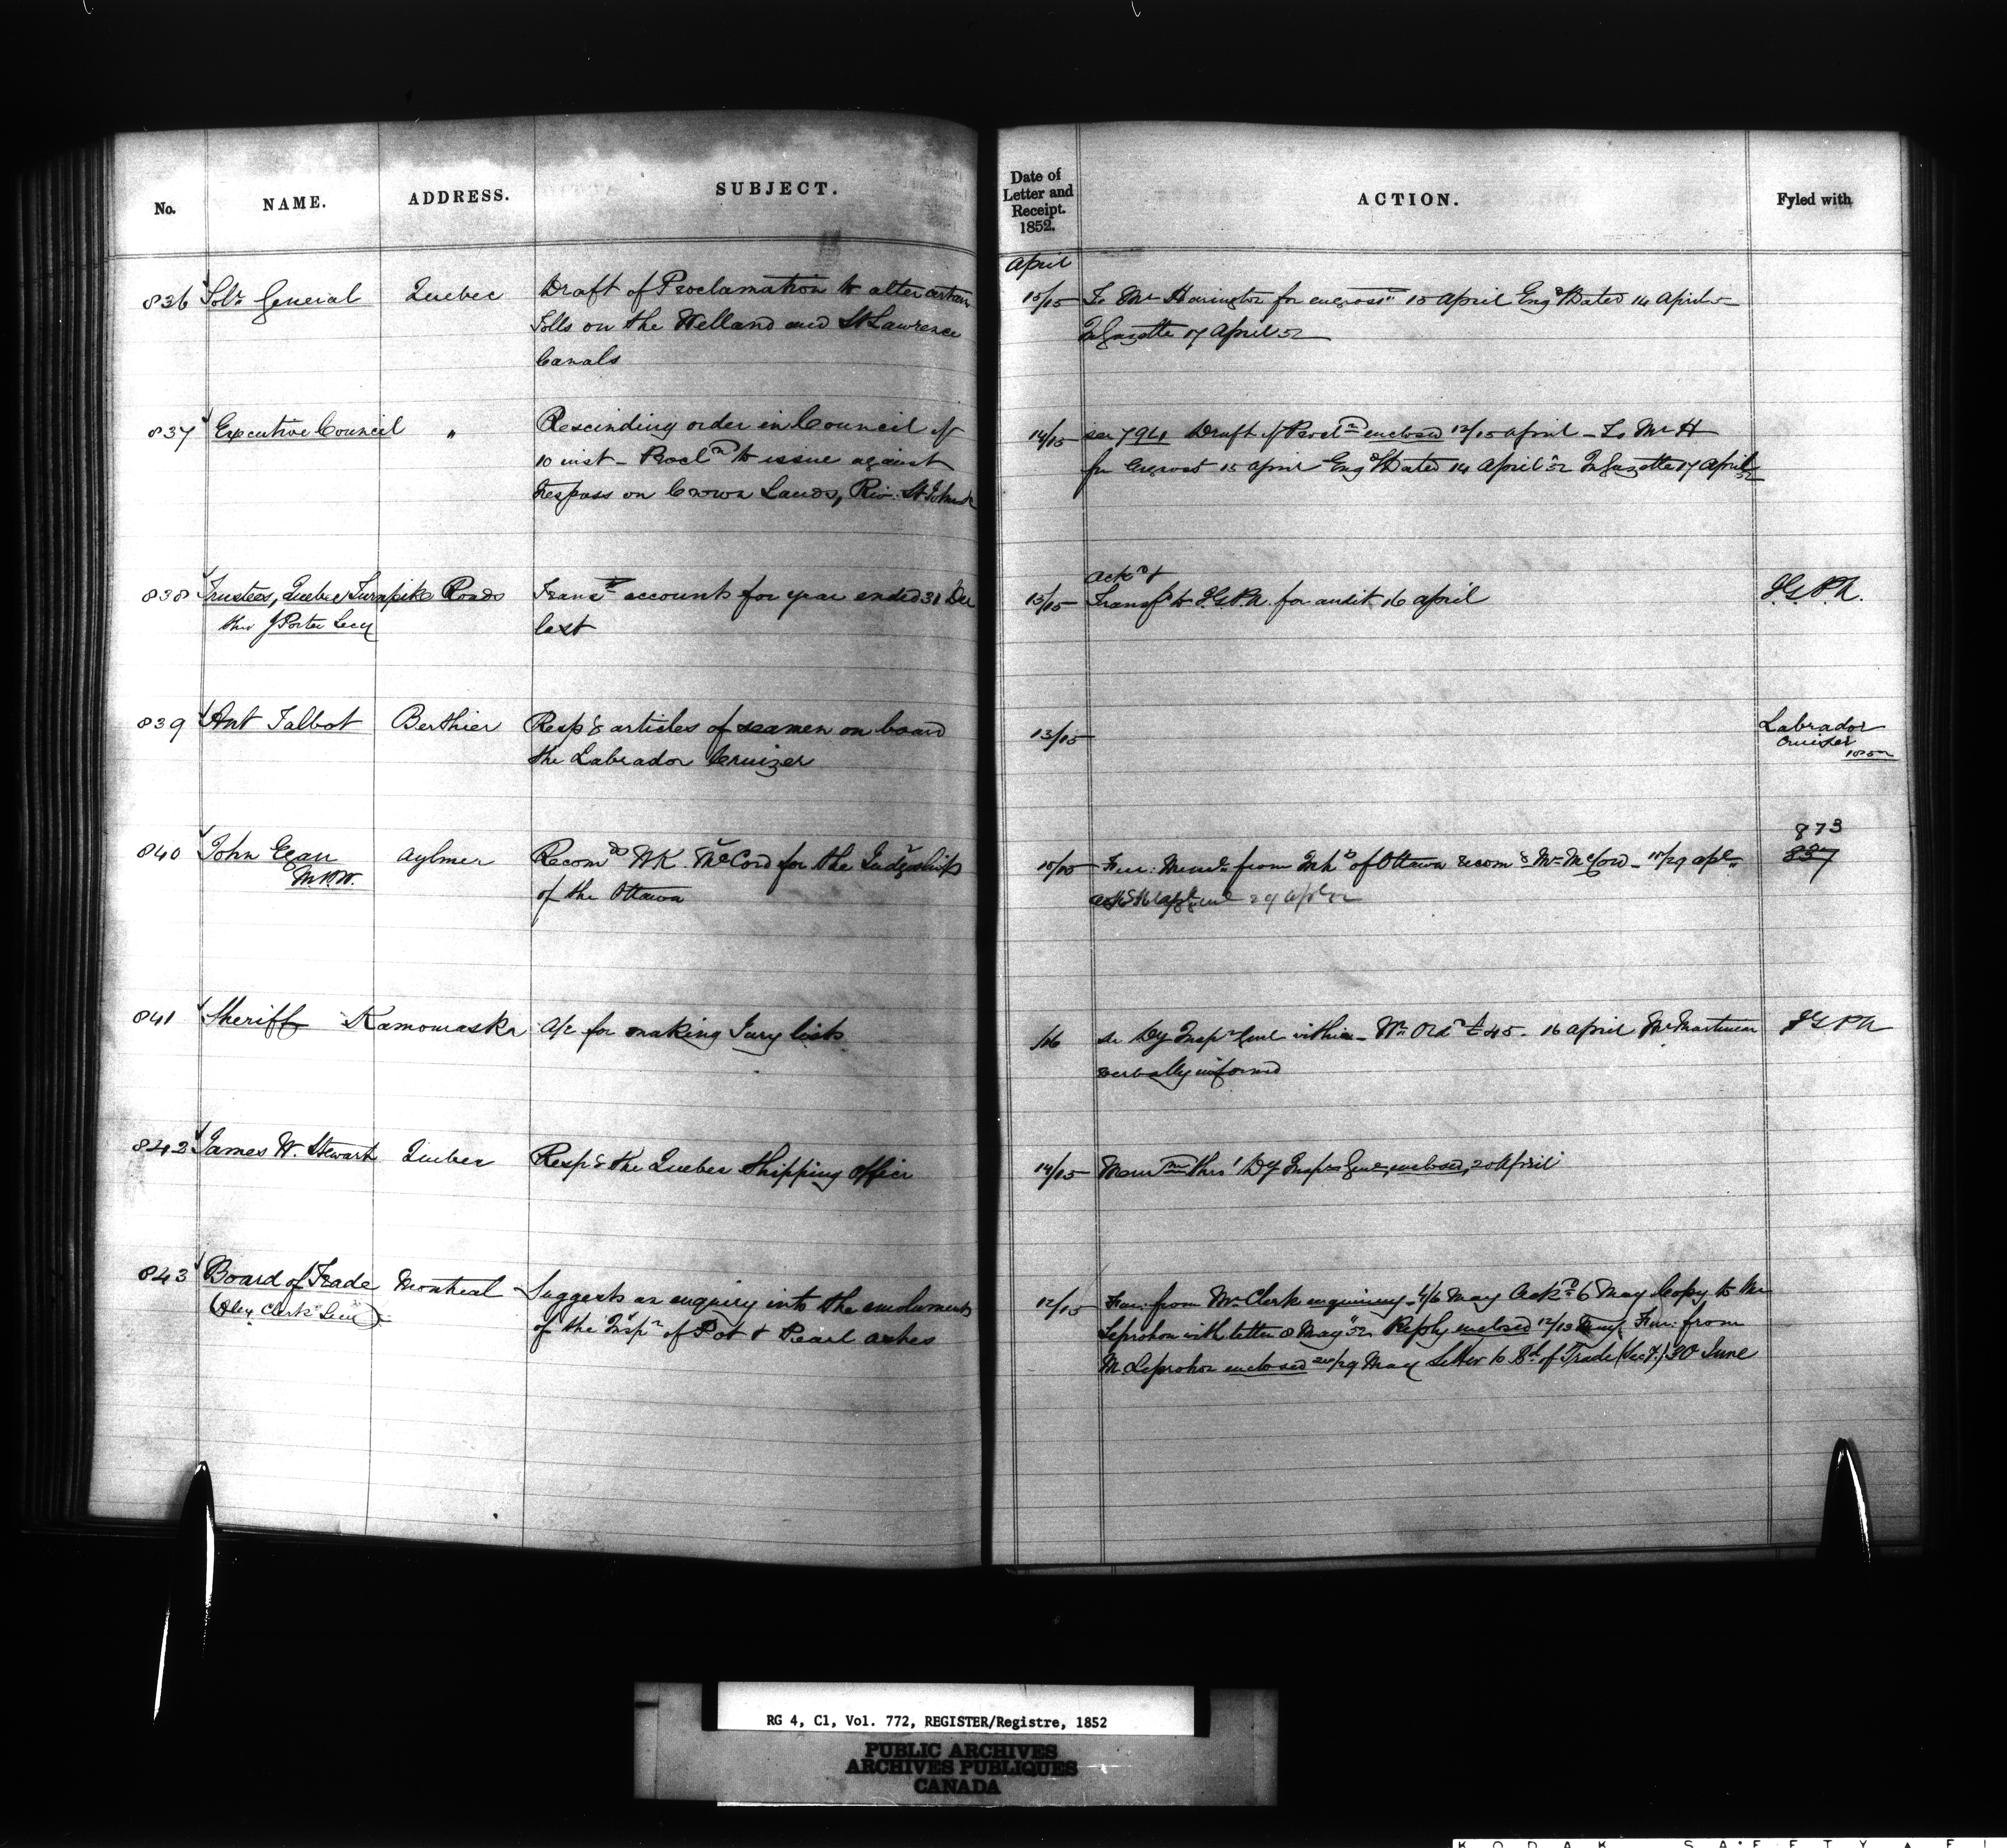 No. NAME. ADDRESS. SUBJECT.
Date of Letter and Receipt. 1852. ACTION. Fyled with
April
836 Solr General Quebec Draft of Proclamation to alter certain
Tolls on the Welland and St Lawrence
Canals
15/15 To Mr Harington for engrossn 15 April Engd & Dated 14 April 52
In Gazette 17 April 52
837 Executive Council " Rescinding order in Council of
10 inst - Procln to issue against
trespass on Crown Lands, Riv. St John &c
14/15 see 794 Draft of Procln enclosed 12/15 April - To Mr H
for Engrost 15 April Engd & Dated 14 April 52 In Gazette 17 April 52
838 Trustees, Quebec Turnpike Roads
thro J Porter Secy
Transg accounts for year ended 31 Dec
last
15/15 Ackd &
Transfd to I.G.P.A. for audit 16 April
I.G.P.A.
839 Ant Talbot Berthier Respg articles of seamen on board
the Labrador Cruizer
13/15
Labrador
Cruiser
1852
840 John Egan
M.P.P.
Aylmer Recomds W K McCord for the Judgeship
of the Ottawa
10/15 Fur: Meml from Inhbs of Ottawa recomg Mr McCord - 15/29 Apl
29 Apl 52
873
837
841 Sheriff Kamouraska A/c for making Jury lists
/16 see Dy Inspr Genl within - Wt Ordd £45 - 16 April
verbally informed
I G P A
842 James W. Stewart Quebec Respg the Quebec Shipping Office
14/15 Memm thro' Dy Inspr Genl enclosed, 20 April
843 Board of Trade Montreal
(Alex Clerk Secy)
Suggests an enquiry into the emoluments
of the Inspr of Pot & Pearl ashes
12/15 Fur: from Mr Clerk enquiring - 4/6 May Ackd 6 May Copy to Mr
Leprohon with letter 8 May 52 Reply enclosed 12/13 May. Fur: from
Mr Leprohon enclosed 20/29 May Letter to Bd of Trade (Secy.) 30 June
RG 4, C1, Vol. 772, REGISTER/Registre, 1852
PUBLIC ARCHIVES
ARCHIVES PUBLIQUES
CANADA
KODAK SAFETY